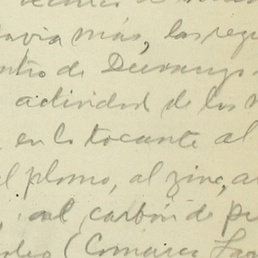 avia más, las reg
ntro de Durango
actividad de los
en lo tocante al
l plomo, al zinc, a
, al carbón de pi
(Comarca Lag